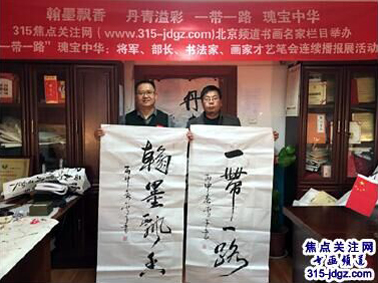 翰墨飘香 丹青溢彩 一带一路 瑰宝中华
315焦点关注网(www.315-jdgz.com)北京频道书画名家栏目举办
一带一路”瑰宝中华：将军、部长、书法家、画家才艺笔会连续播报展活动
丹
翰墨飘香
一带一路
焦点关注网
书画频道
315-jdgz.com